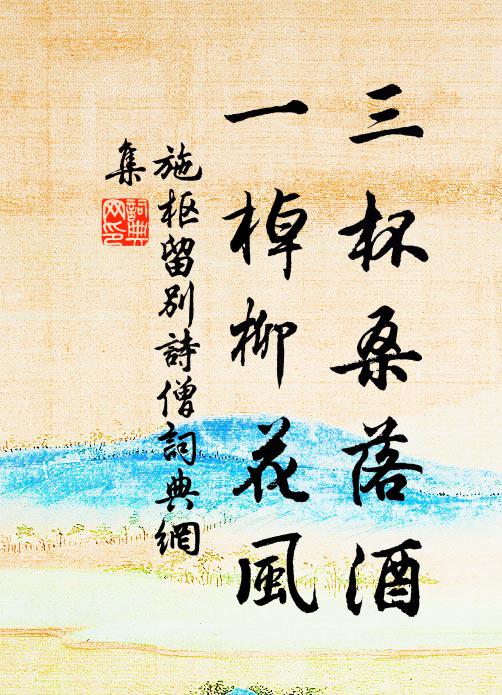 三杯桑落酒
一棹柳花風
施枢留别詩僧詞典網
集
詞典
网印